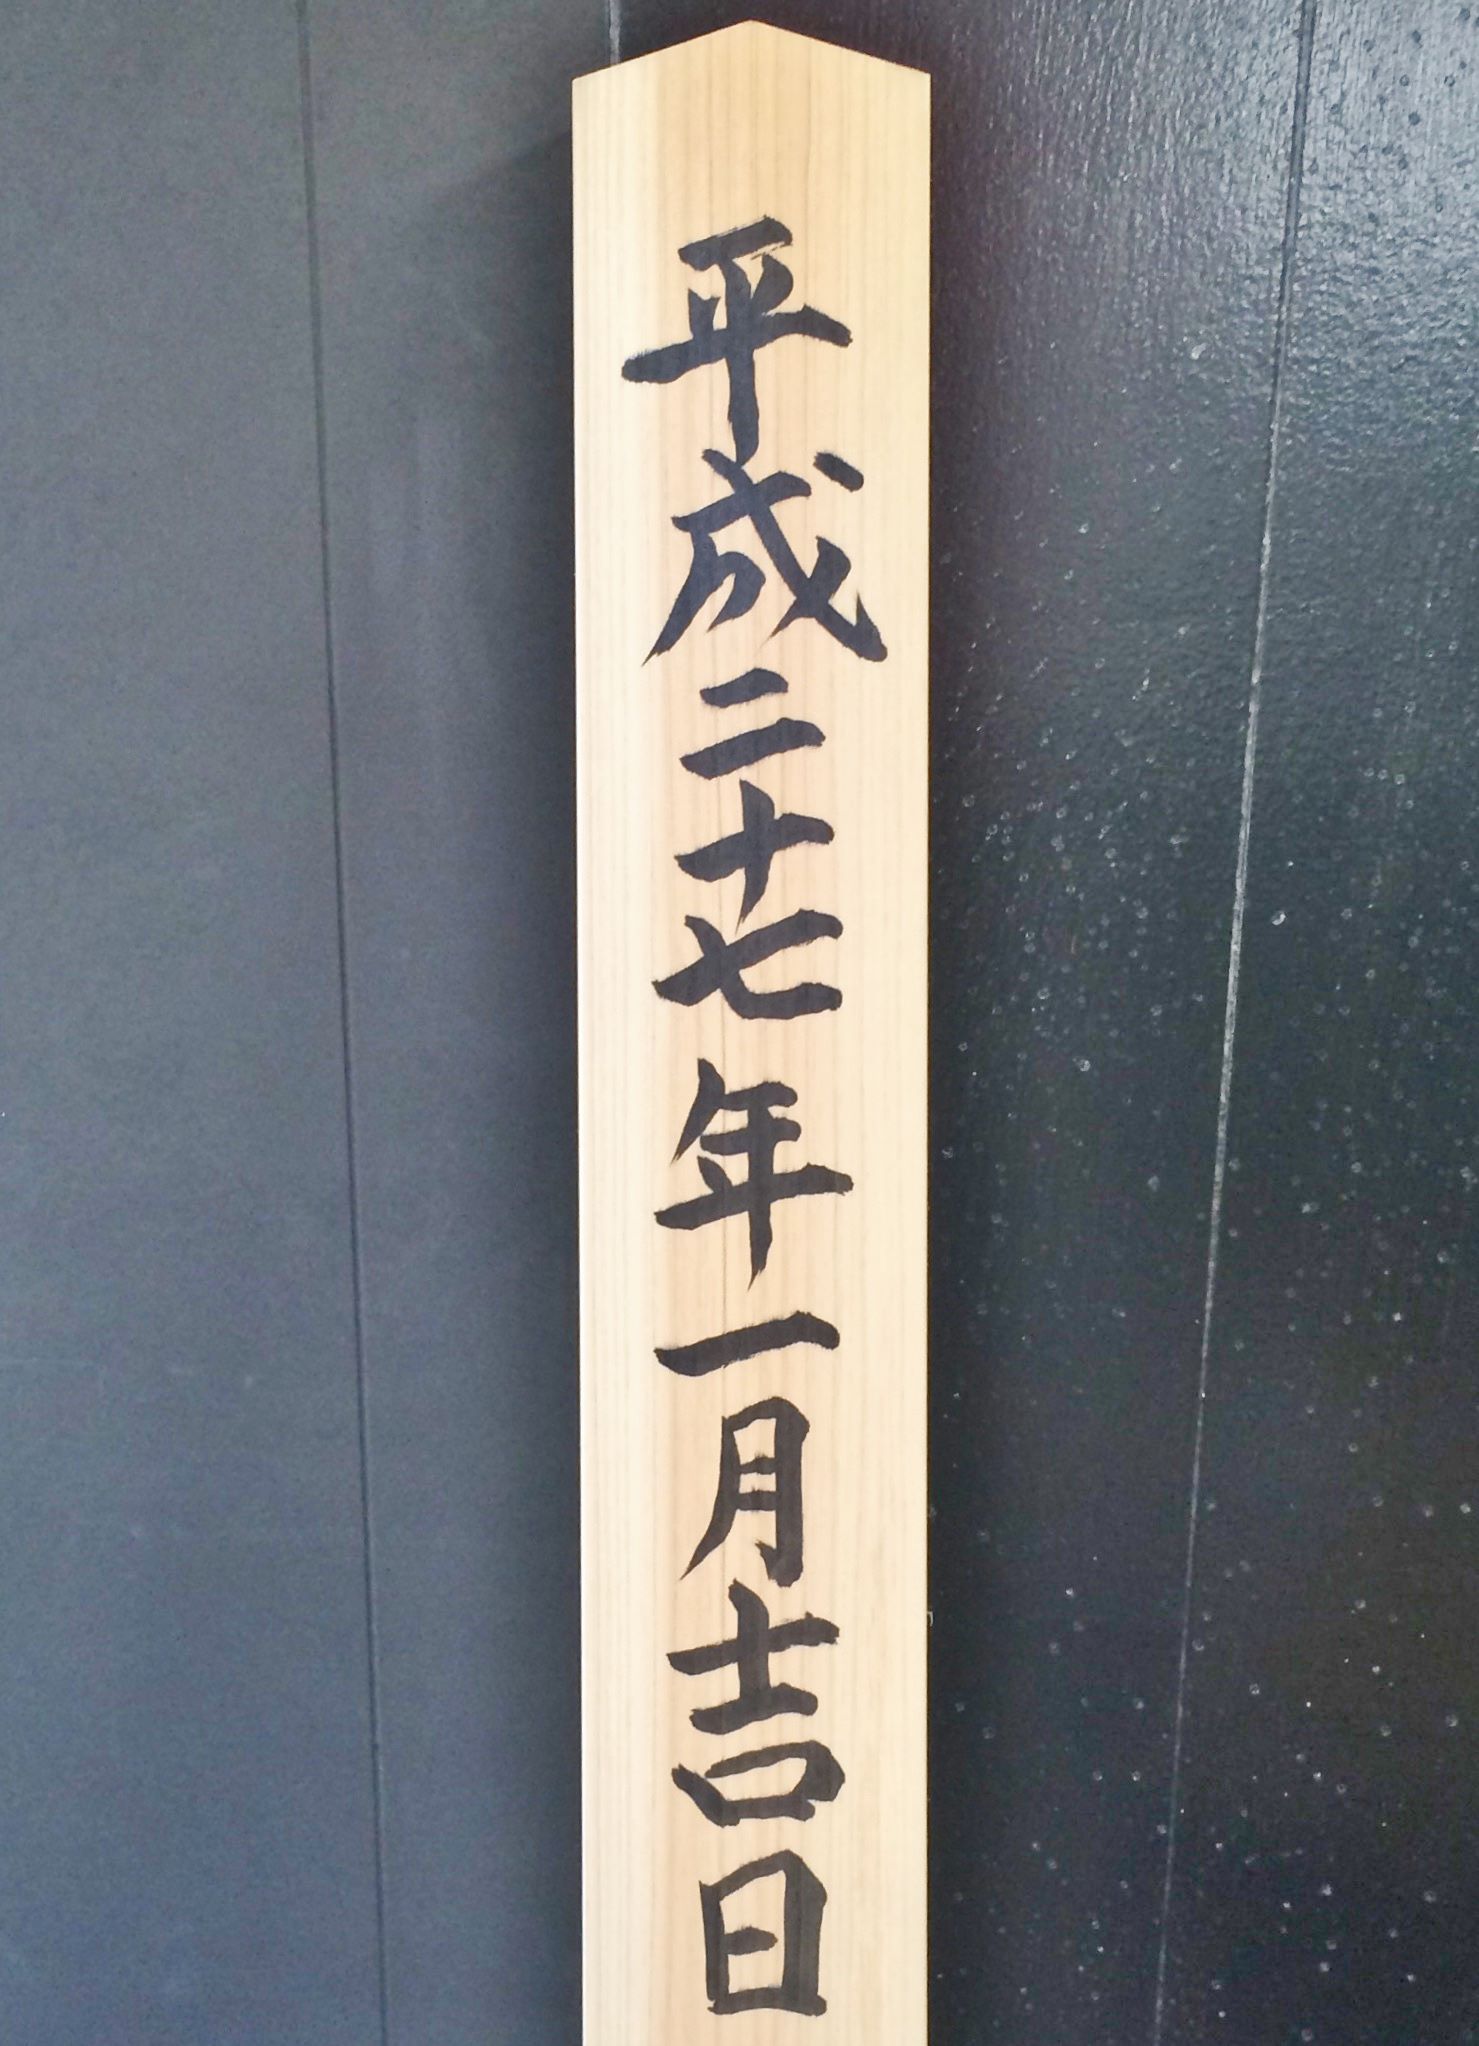 平成二十七年一月吉日